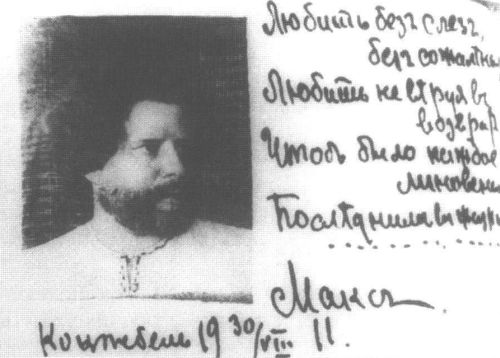 Любить безъ слезъ,
безъ сожалѣнь
Любить не вѣруя въ
возвра
Чтобъ было каждое
мгновень
Послѣднимъ въ жизн
Максъ
Коктебель 19 30/VIII 11.